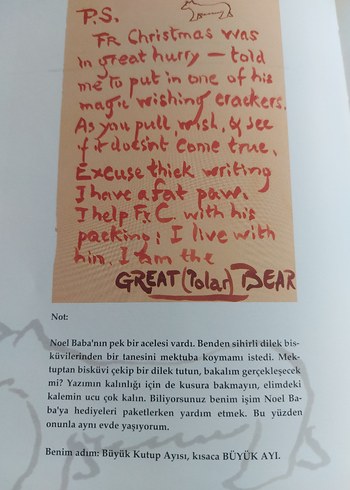 P.S.
FR Christmas was
in great hurry — told
me to put in one of his
magic wishing crackers.
As you pull, wish, & see
if it doesn't come true.
Excuse thick writing
I have a fat paw.
I help F.C. with his
packing: I live with
him. I am the
GREAT (Polar) BEAR
Not:
Noel Baba'nın pek bir acelesi vardı. Benden sihirli dilek bis-
küvilerinden bir tanesini mektuba koymamı istedi. Mek-
tuptan bisküvi çekip bir dilek tutun, bakalım gerçekleşecek
mi? Yazımın kalınlığı için de kusura bakmayın, elimdeki
kalemin ucu çok kalın. Biliyorsunuz benim işim Noel Ba-
ba'ya hediyeleri paketlerken yardım etmek. Bu yüzden
onunla aynı evde yaşıyorum.
Benim adım: Büyük Kutup Ayısı, kısaca BÜYÜK AYI.